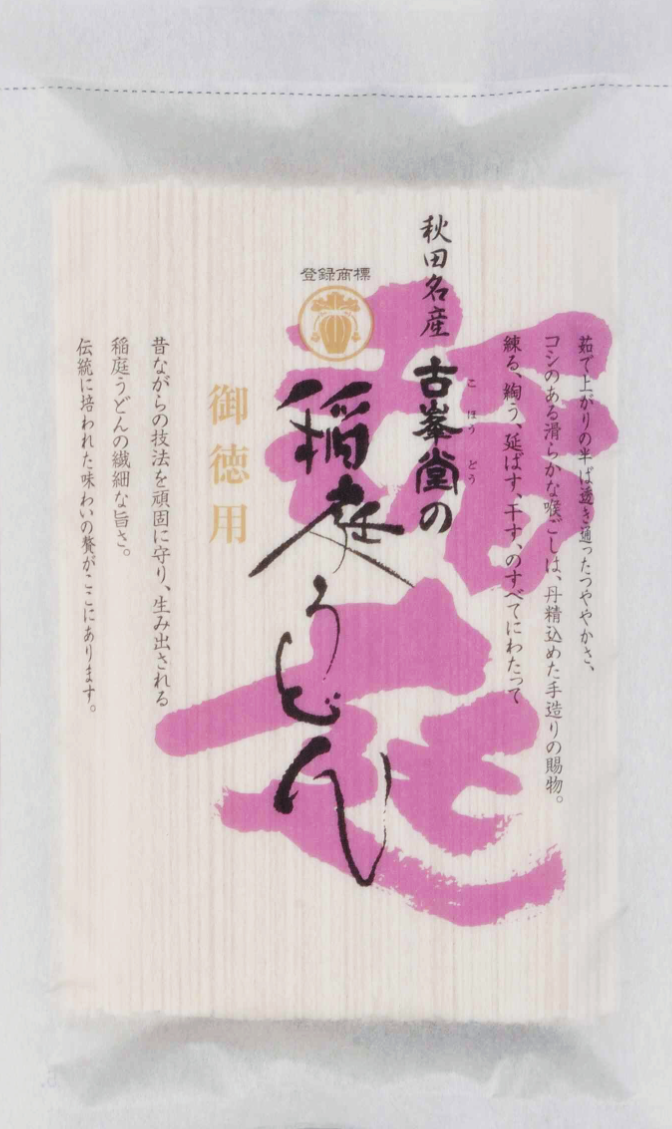 茹で上がりの半ば透き通ったつややかさ、
コシのある滑らかな喉ごしは、丹精込めた手造りの賜物。
練る、綯う、延ばす、干す、のすべてにわたって
秋田名産 古峯堂の
こほうどう
登録商標
稲庭うどん
御徳用
昔ながらの技法を頑固に守り、生み出される
稲庭うどんの繊細な旨さ。
伝統に培われた味わいの贅がここにあります。